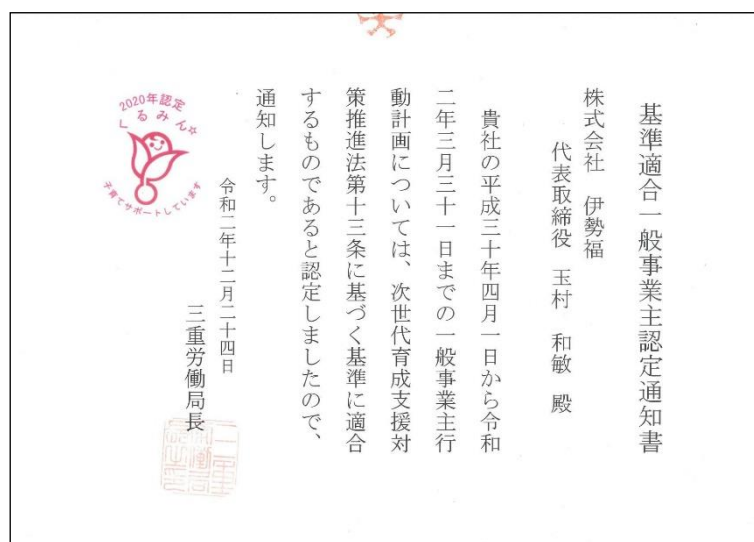 基準適合一般事業主認定通知書
株式会社 伊勢福
代表取締役 玉村 和敏 殿
貴社の平成三十年四月一日から令和
二年三月三十一日までの一般事業主行
動計画については、次世代育成支援対
策推進法第十三条に基づく基準に適合
するものであると認定しましたので、
通知します。
令和二年十二月二十四日
三重労働局長
2020年認定
くるみん☆
子育てサポートしています